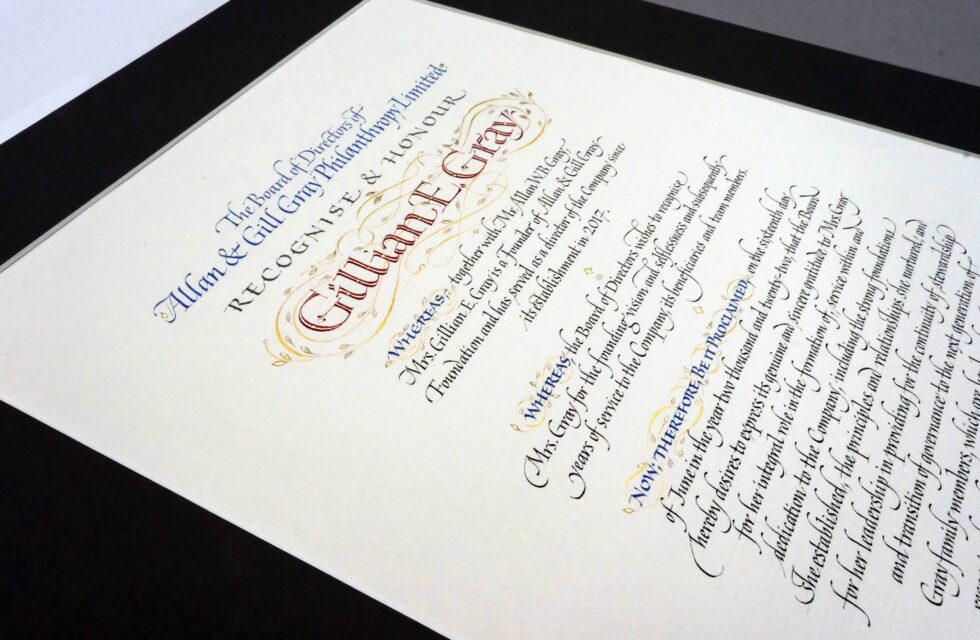 The Board of Directors of
Allan & Gill Gray Philanthropy Limited
RECOGNISE & HONOUR
Gillian E. Gray
WHEREAS, together with Mr. Allan W.B. Gray,
Mrs. Gillian E. Gray is a Founder of Allan & Gill Gray
Foundation and has served as a director of the Company since
its establishment in 2017.
WHEREAS, the Board of Directors wishes to recognise
Mrs. Gray for the founding vision and selflessness and subsequently
years of service to the Company, its beneficiaries and team members.
NOW, THEREFORE BE IT PROCLAIMED, on the sixteenth day
of June in the year two thousand and twenty-two, that the Board
hereby desires to express its genuine and sincere gratitude to Mrs. Gray
for her integral role in the formation of service within and
dedication to the Company, including the strong foundations
She established, the principles and relationships she nurtured, and
for her leadership in providing for the continuity of stewardship
and transition of governance to the next generation
Gray family members